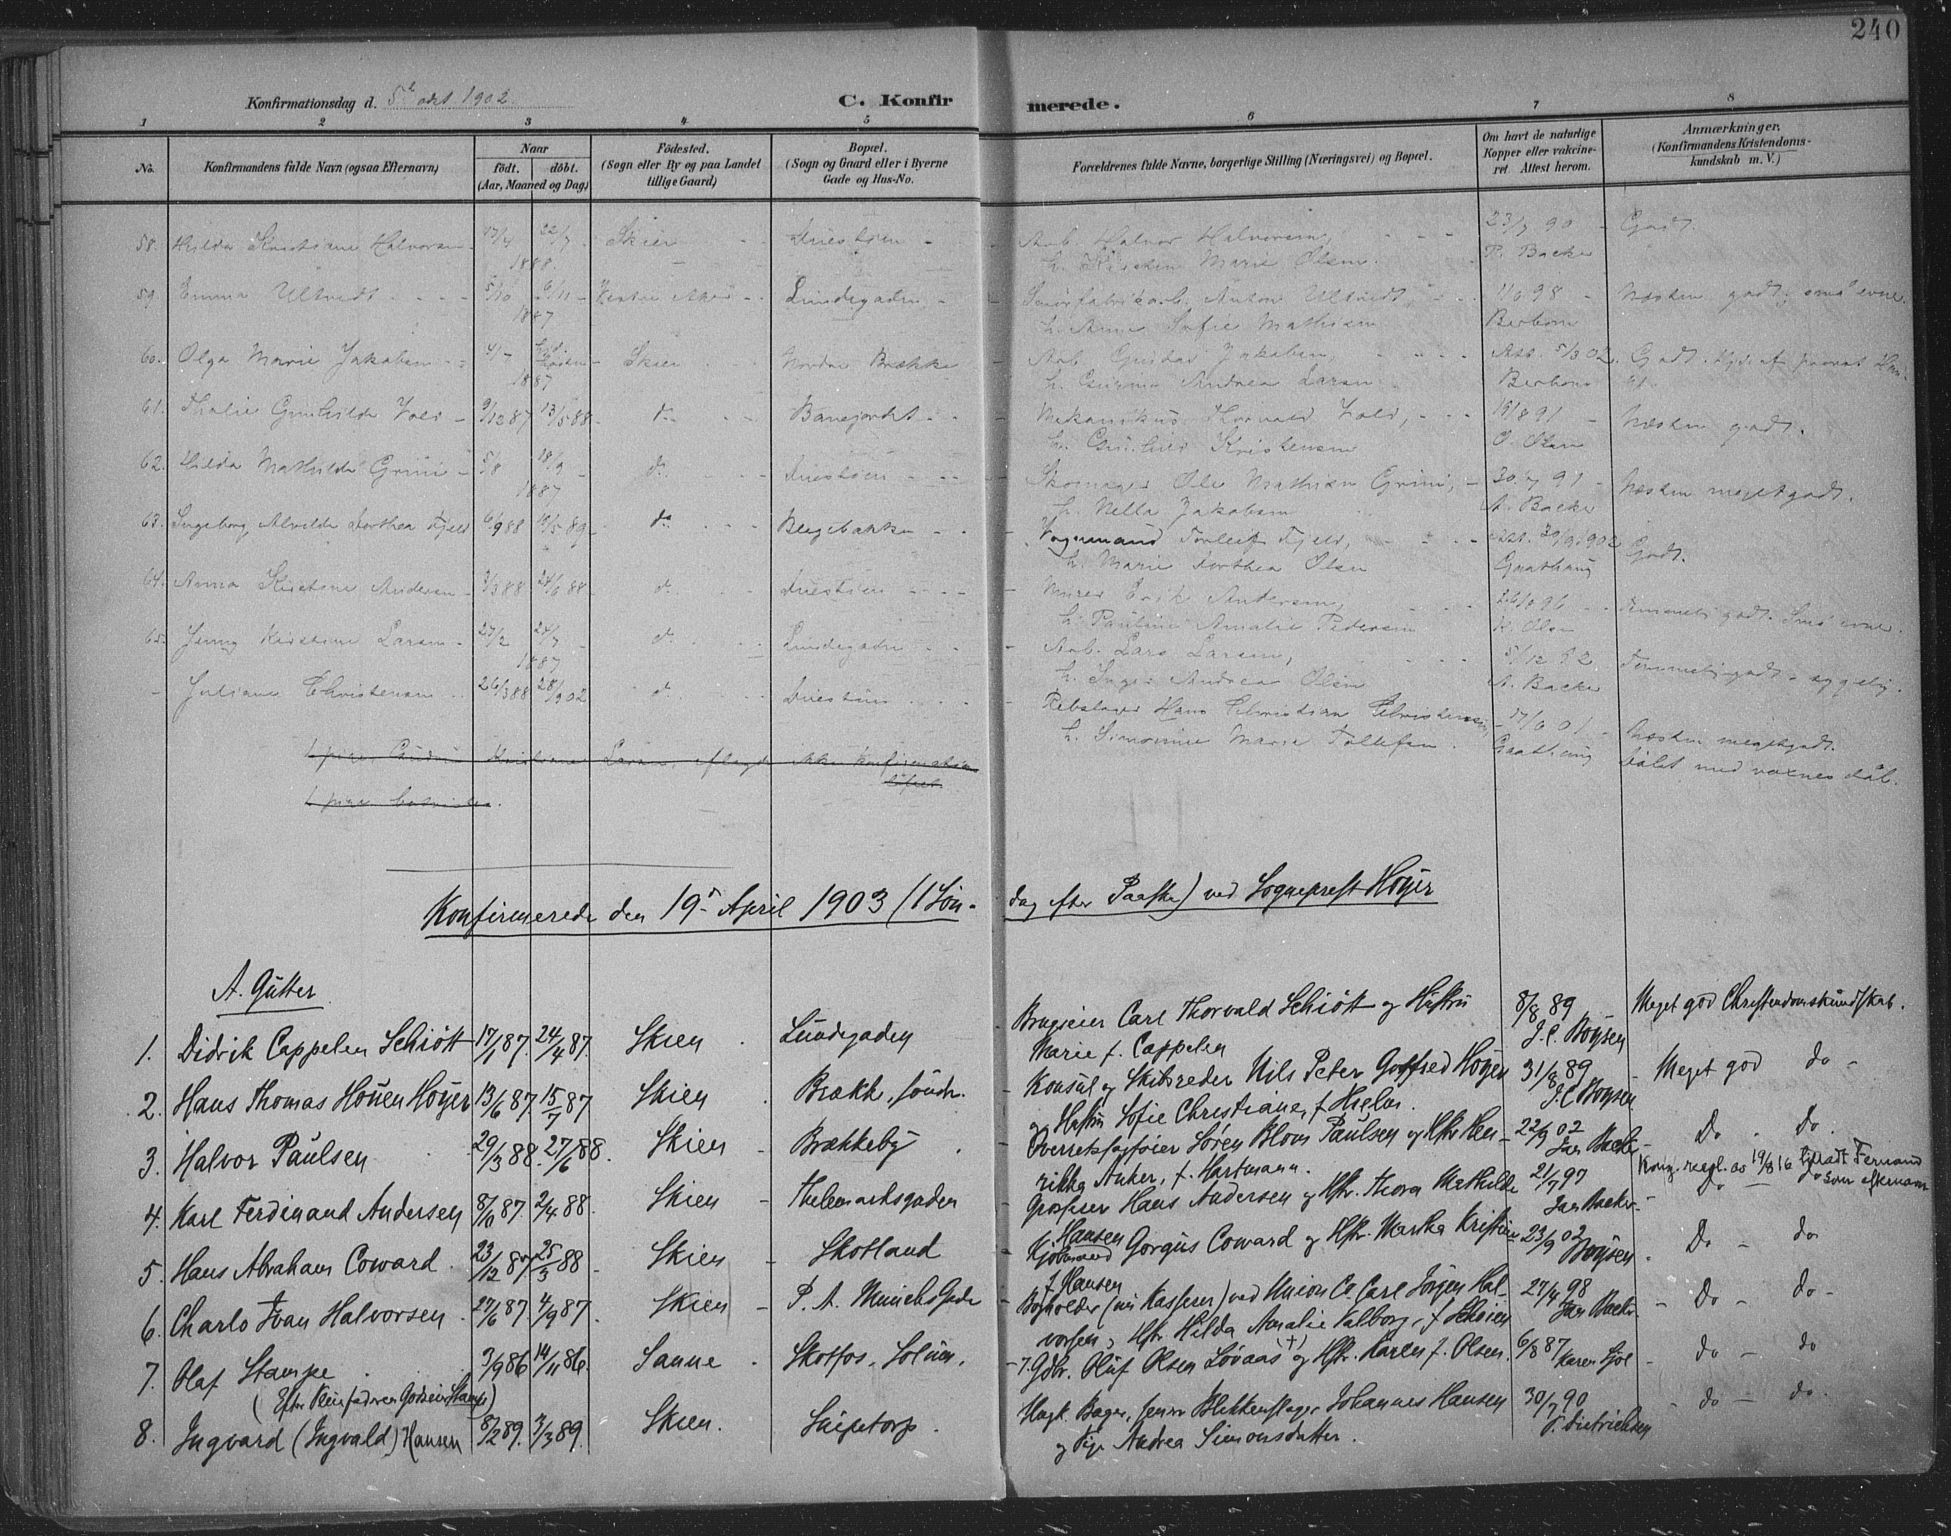 240
Konfirmationsdag d. 5te okt 1902
C. Konfirmerede.
1 2 3 4 5 6 7 8
No.
Konfirmandens fulde Navn (ogsaa Efternavn)
Naar
født. døbt.
(Aar, Maaned og Dag)
Fødested.
(Sogn eller By og paa Landet
tillige Gaard)
Bopæl.
(Sogn og Gaard eller i Byerne
Gade og Hus-No.
Forældrenes fulde Navne, borgerlige Stilling (Næringsvei) og Bopæl.
Om havt de naturlige
Kopper eller vakcine-
ret. Attest herom.
Anmærkninger.
(Konfirmandens Kristendoms-
kundskab m. V.)
58. Hilda Kristiane Halvorsen 17/4 22/7 1888 Skien Duestien Arb. Halvor Halvorsen, 23/7 90 Godt.
h. Kirsten Marie Olsen. P. Backe
59. Emma Ultvedt 5/10 6/11 1887 Vestre Aker Lundegaden Smørfabrikarb. Anton Ultvedt, 1/6 98 Næsten godt, små evner.
h. Anne Sofie Mathisen Berbom
60. Olga Marie Jakobsen 1887 Skien Nordre Brække Arb. Gustav Jakobsen Att. 5/3 02. Godt.
h. Andrea Larsen Berbom
61. Thalie Gunhilda Vold 9/12 87 13/5 88 do Banejordet Mekanikus Thorvald Vold, 19/8 91 Næsten godt.
h. Kristensen O. Olsen
62. Hilda Mathilde Grini 5/8 18/9 1887 do Duestien Skomager Ole Mathisen Grini, 30/7 91 Næsten meget godt.
h. Nella Jakobsen A. Backe
63. Ingeborg Alvilde Dorthea Fjeld 6/9 88 do Bergebakken Vognmand Torleif Fjeld, Att. 30/9 1902 Godt.
h. Marie Dorthea Olsen Graathaug
64. Anna Kirstine Andersen 3/3 88 24/6 88 do Duestien Murer Erik Andersen, 26/9 96 Temmelig godt. Små evner.
h. Pauline Amalie Pedersen K. Olsen
65. Jenny Kirstine Larsen 27/2 24/7 1887 do Lundegaden Arb. Lars Larsen, 5/12 92 Temmelig godt, sygelig.
h. Inger Andrea Olsen A. Backe
Juliane Christensen 26/3 88 28/9 02 do Duestien Rebslager Hans Christian Christensen, 17/6 01 Næsten meget godt.
h. Simonine Marie Tollefsen. Graathaug Døbt med voxnes dåb.
1 pige Kristiane Larsen, aflagde ikke konfirmationsløftet
1 pige
Konfirmerede den 19de April 1903 (1 Søndag efter Paaske) ved Sogneprest Höyer
A. Gutter
1. Didrik Cappelen Schiött 17/1 87. 24/4 87. Skien Lundegaden Brugseier Carl Thorvald Schiött og Hustru 8/8 89 Meget god Christendomskundskab.
Marie f. Cappelen J. C. Boysen
2. Hans Thomas Höuen Höyer 13/6 87. 15/7 87 Skien Brække, søndr. Konsul og Skibsreder Nils Peter Gotfred Höyer 31/8 89 Meget god do
og Hustru Sofie Christiane, f. J. C. Boysen
3. Halvor Paulsen 29/3 88. 27/6 88. Skien Brækkeby Overretssagfører Søren Blom Paulsen og Hstr. Hen- 22/9 02 Do do.
rikka Anker, f. Hartmann. Jan Backe
4. Karl Ferdinand Andersen 8/10 87. 2/4 88. Skien Thelemarksgaden Grosserer Hans Andersen og Hstr. Thora Mathilde 21/7 97 Do do
f. Hansen Jan Backe
Kong. resol. av 19/8 16 Fernand som efternavn
5. Hans Abraham Coward. 23/12 87 25/3 88 Skien Skotland Kjöbmand Gorgus Coward og Hstr. Martha Kristine 23/9 02 Do do
f. Hansen Boysen
6. Charls Ivan Halvorsen 27/6 87. 4/9 87. Skien P. A. Munchs Gade Bogholder (nu Kasserer) ved Union Co Carl Jörgen Hal- 27/4 98 Do do
vorsen, Hstr. Hilda Amalie Valborg, f. Jan Backe
7. Olaf Stampe 3/9 86 14/11 86. Sanne Skotfos. Solum. Gdbr. Oluf Olsen Lövaas (+) og Hstr. Karen f. Olsen. 6/8 87 Karen do do
(Efter Pleiefaderen Stampe)
8. Ingvard (Ingvald) Hansen 8/2 89. 3/3 89. Skien. Snipetorp. Ungk. Bager, senere Blikkenslager Johannes Hansen 30/7 90 do do.
og Pige Andrea Simonsdatter. P. Dietrichsen